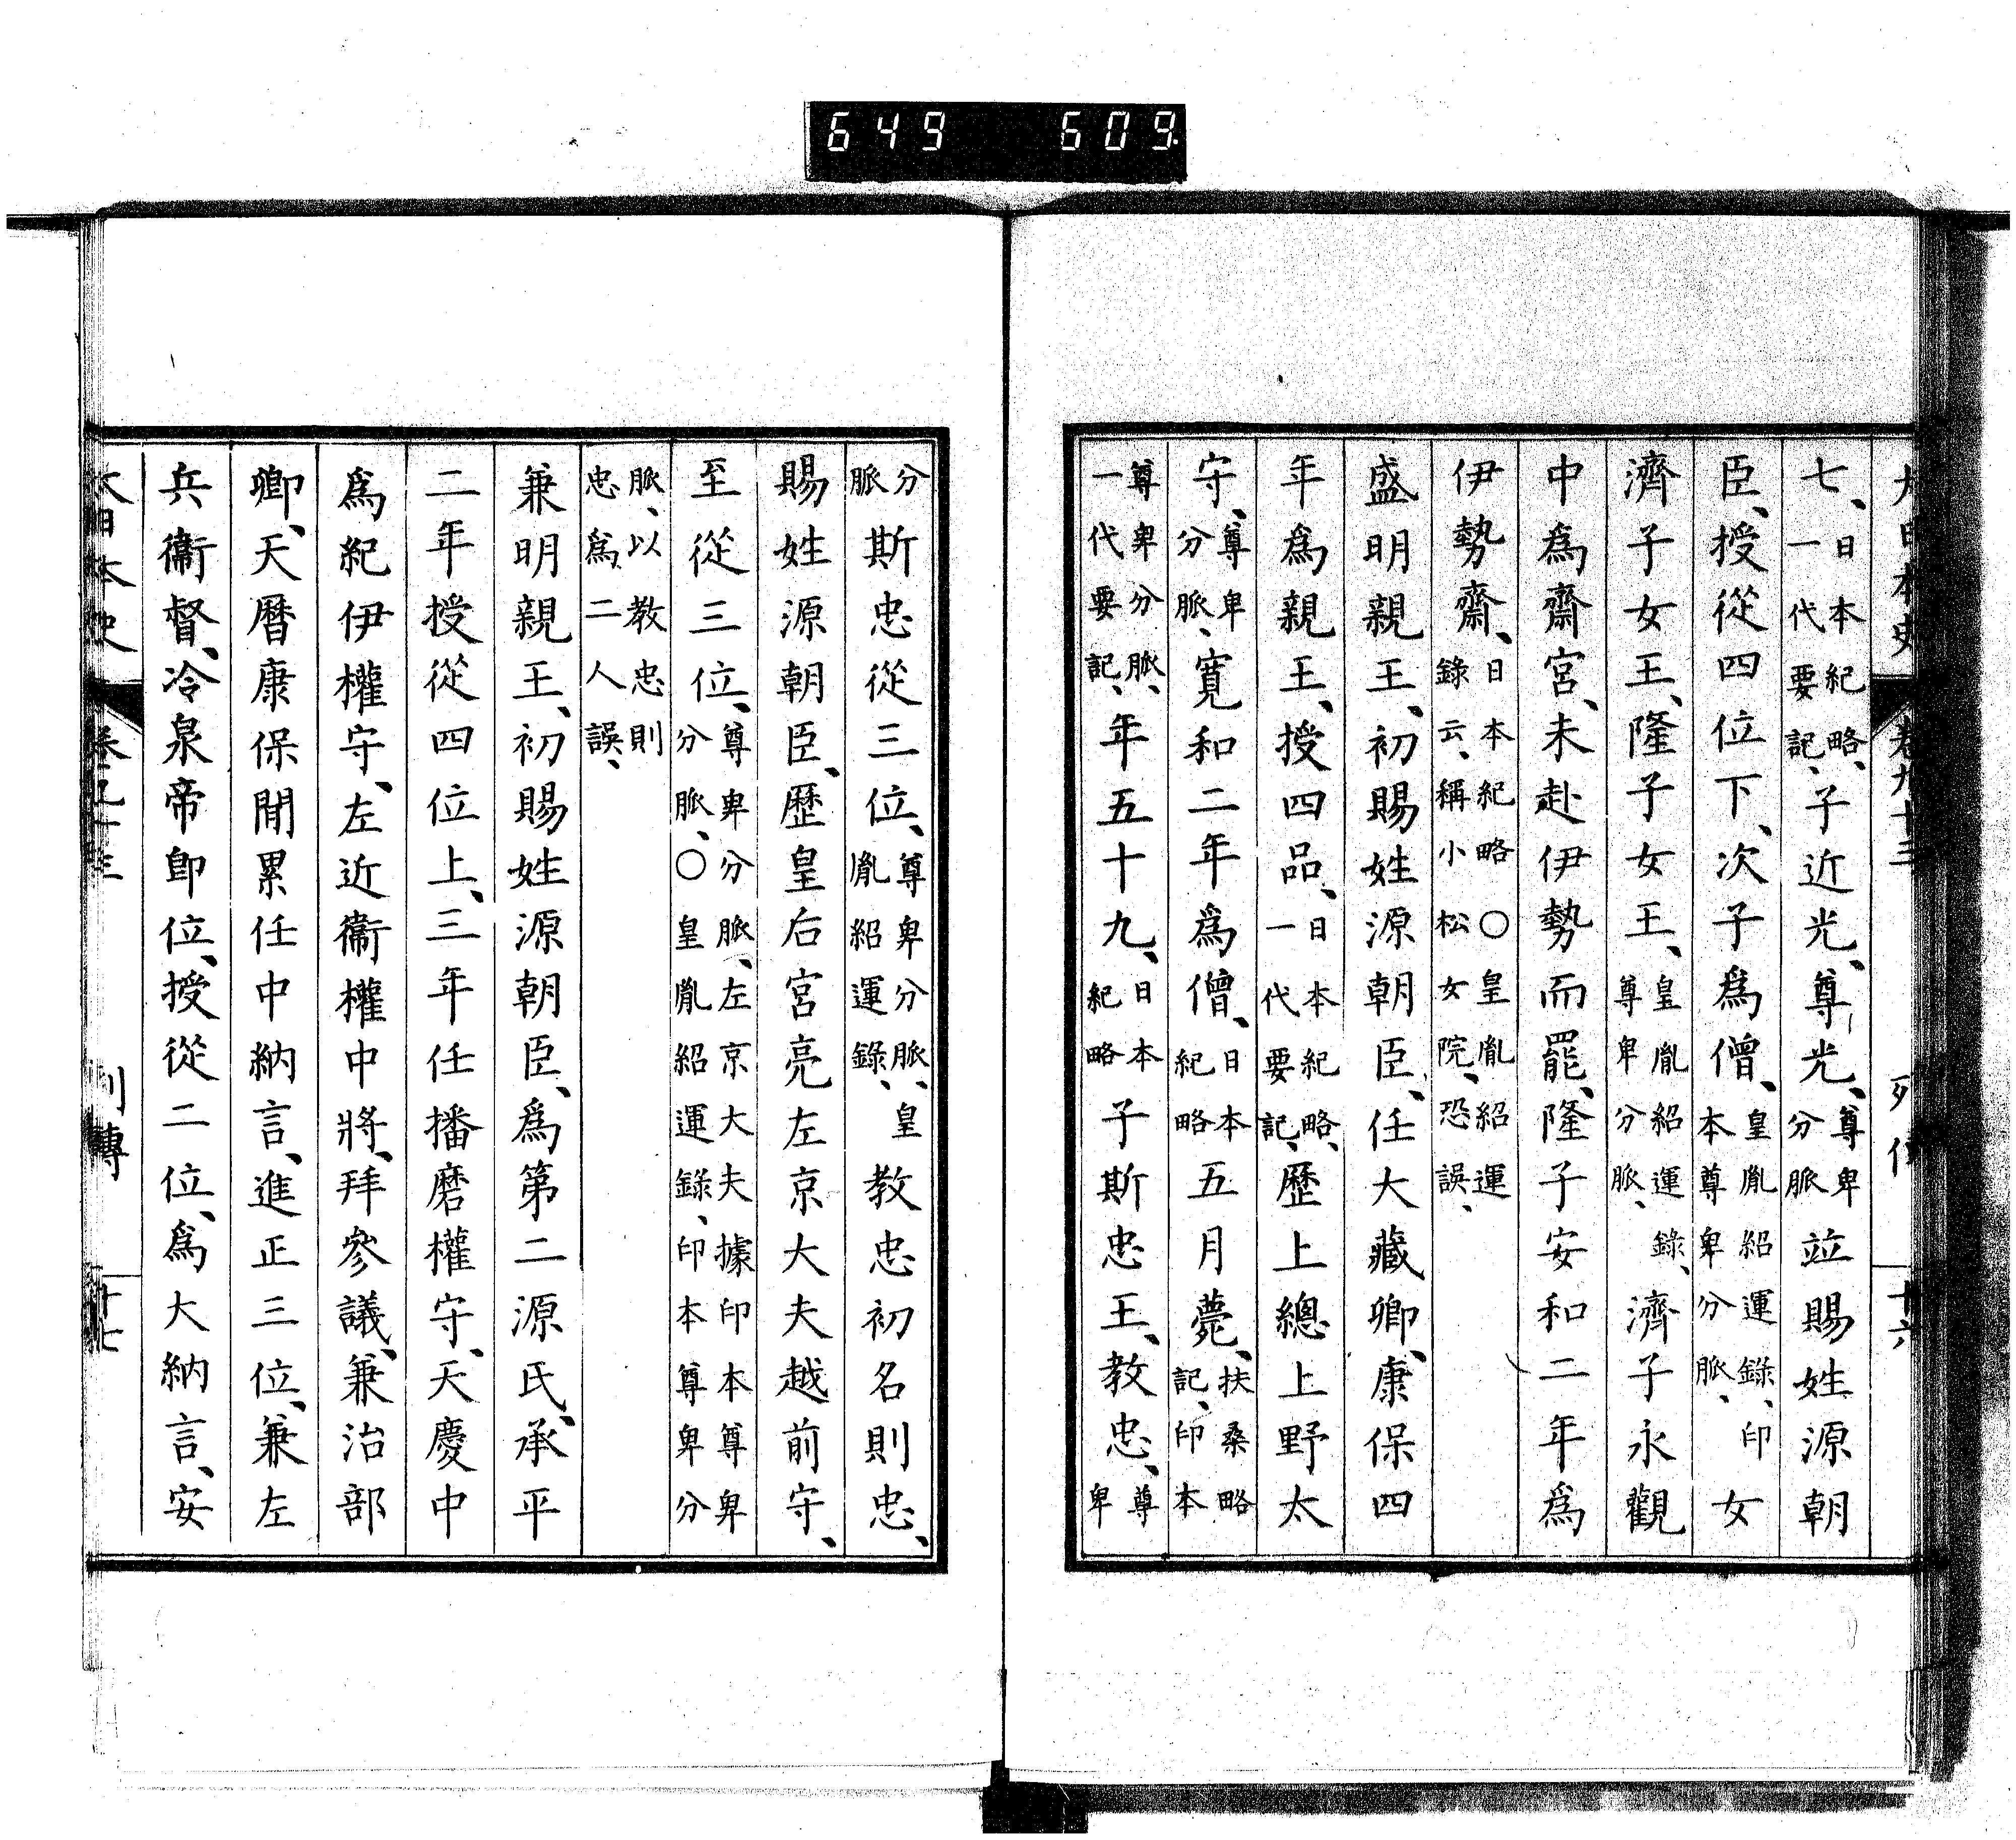 649 609
大日本史 卷九十三 列傳 十六
七、日本紀略、一代要記、子近光、尊光、尊卑分脈竝賜姓源朝
臣、授從四位下、次子爲僧、皇胤紹運錄、印本尊卑分脈、女
濟子女王、隆子女王、皇胤紹運錄、尊卑分脈、濟子永觀
中爲齋宮、未赴伊勢而罷、隆子安和二年爲
伊勢齋、日本紀略〇皇胤紹運錄云、稱小松女院、恐誤、
盛明親王、初賜姓源朝臣、任大藏卿、康保四
年爲親王、授四品、日本紀略、一代要記、歷上總上野太
守、尊卑分脈、寬和二年爲僧、日本紀略五月薨、扶桑略記、印本
尊卑分脈、一代要記、年五十九、日本紀略子斯忠王、教忠、尊卑
分脈斯忠從三位、尊卑分脈、皇胤紹運錄、教忠初名則忠、
賜姓源朝臣、歷皇后宮亮左京大夫越前守、
至從三位、尊卑分脈、左京大夫據印本尊卑分脈、〇皇胤紹運錄、印本尊卑分
脈、以教忠則忠爲二人誤、
兼明親王、初賜姓源朝臣、爲第二源氏、承平
二年授從四位上、三年任播磨權守、天慶中
爲紀伊權守、左近衞權中將、拜參議、兼治部
卿、天曆康保閒累任中納言、進正三位、兼左
兵衞督、冷泉帝卽位、授從二位、爲大納言、安
大日本史 卷九十三 列傳 十七